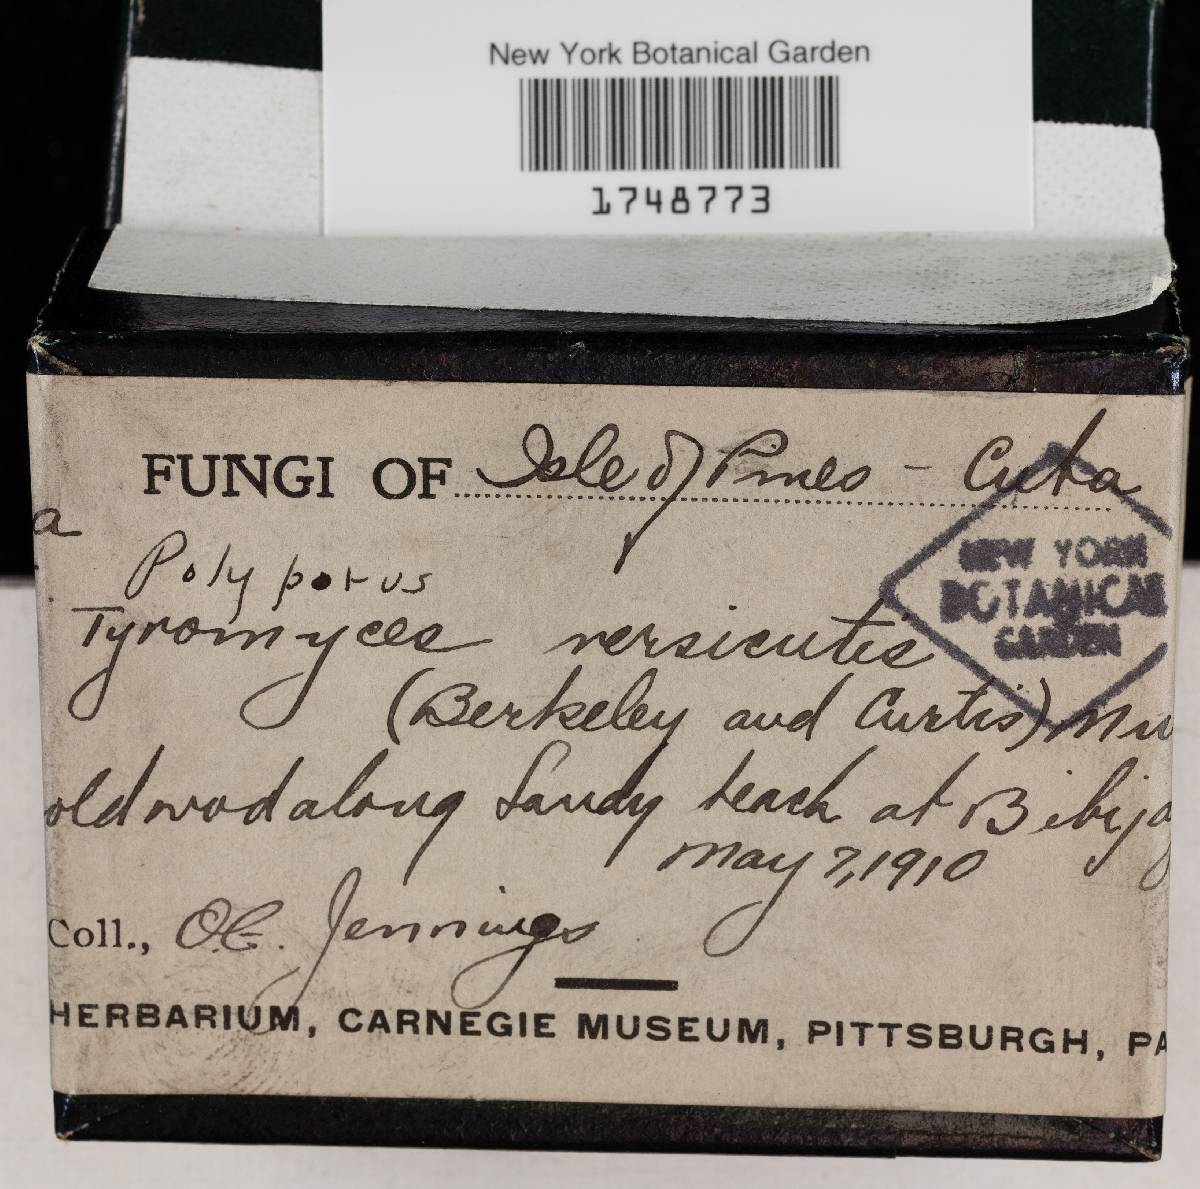 New York Botanical Garden
1748773
FUNGI OF Isle of Pines - Cuba
a
Polyporus
NEW YORK
BOTANICAL
GARDEN
Tyromyces versicutis
(Berkeley and Curtis) Mu
old wood along Sandy beach at Bibija
May 7, 1910
Coll., O.E. Jennings
HERBARIUM, CARNEGIE MUSEUM, PITTSBURGH, PA